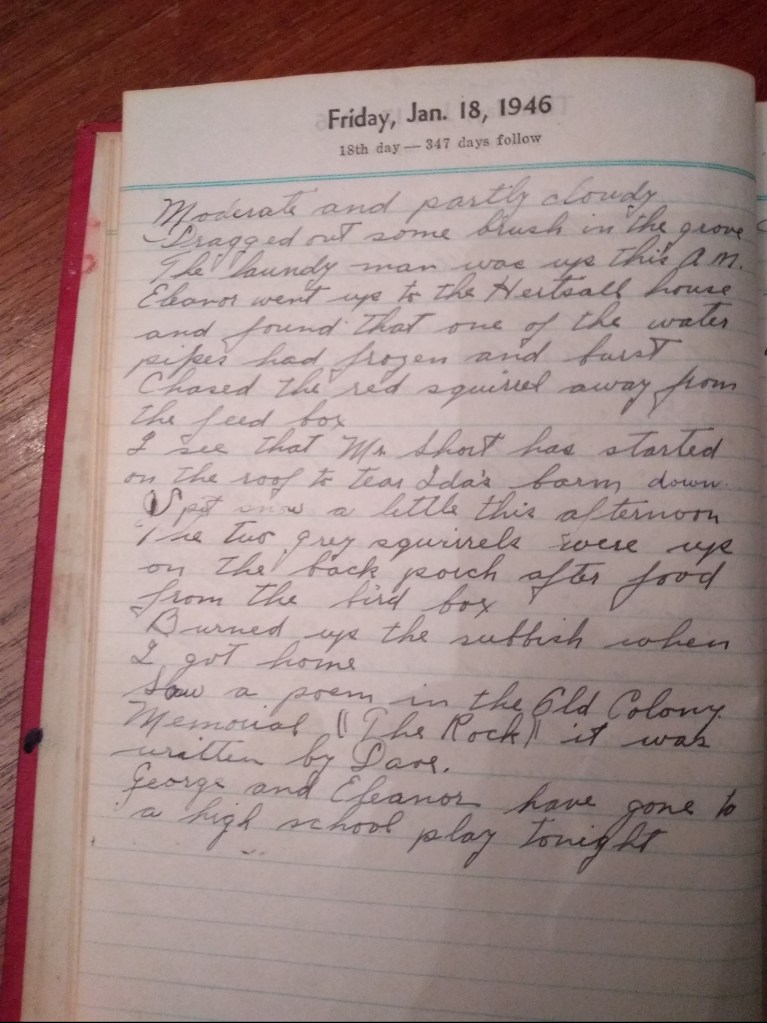 Friday, Jan. 18, 1946
18th day — 347 days follow
Moderate and partly cloudy
Dragged out some brush in the grove
The laundy man was up this A.M.
Eleanor went up to the house
and found that one of the water
pipes had frozen and burst
Chased the red squirrel away from
the feed box
I see that Mr Short has started
on the roof to tear Ida's barm down.
Spit snow a little this afternoon
The two grey squirrels were up
on the back porch after food
from the bird box
Burned up the rubbish when
I got home
Saw a poem in the Old Colony
Memorial "The Rock" it was
written by Dave.
George and Eleanor have gone to
a high school play tonight